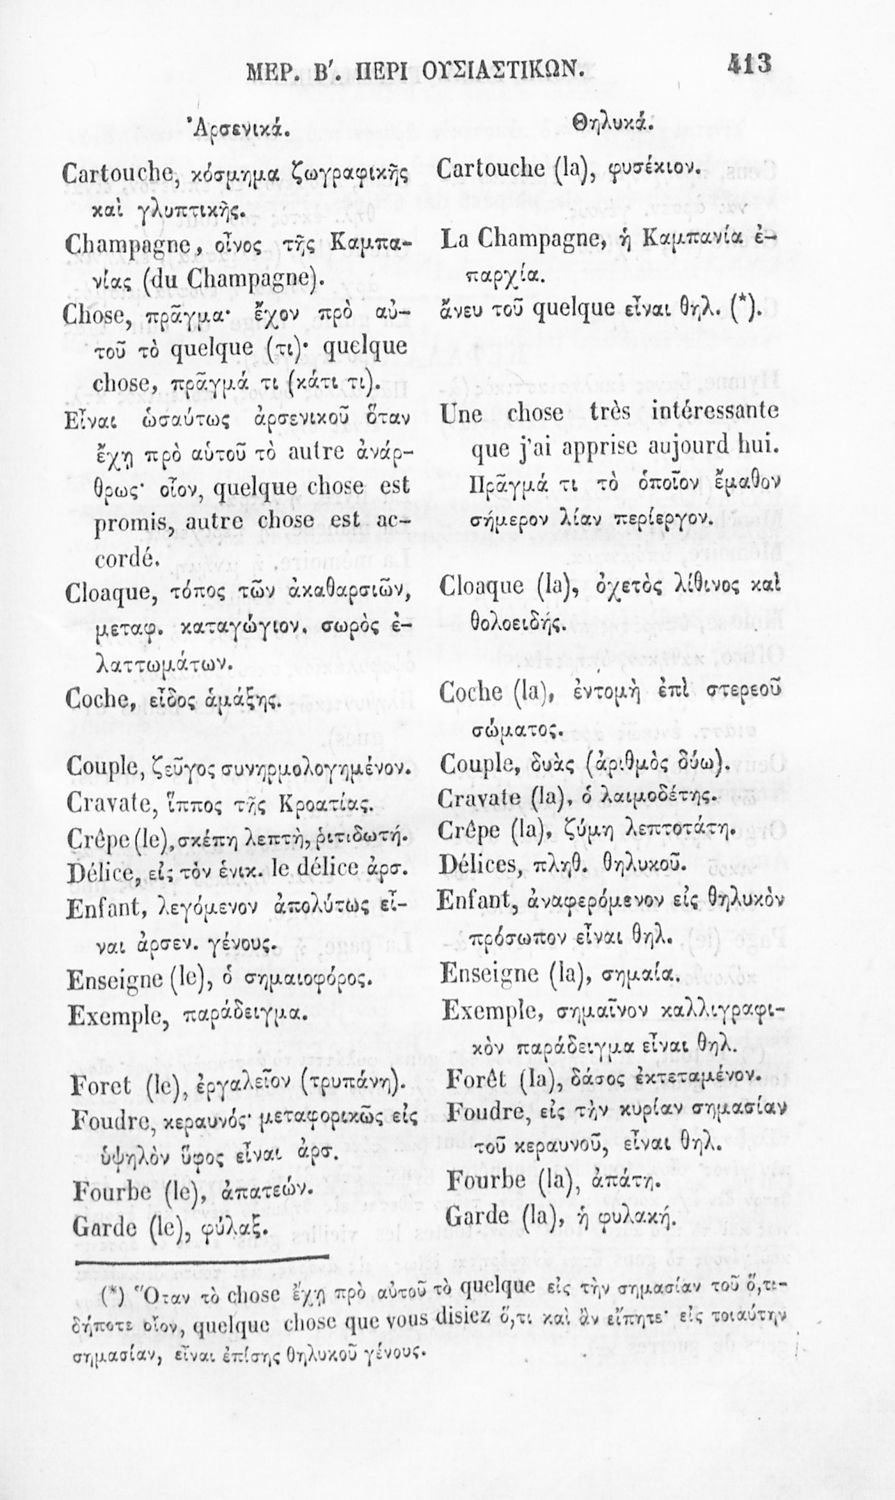 ΜΕΡ. Β'. ΠΕΡΙ ΟΥΣΙΑΣΤΙΚΩΝ.
413
Ἀρσενικά.
Cartouche, κόσμημα ζωγραφικῆς
καὶ γλυπτικῆς.
Champagne, οἶνος τῆς Καμπα-
νίας (du Champagne).
Chose, πρᾶγμα· ἔχον πρὸ αὐ-
τοῦ τὸ quelque (τι)· quelque
chose, πρᾶγμά τι (κάτι τι).
Εἶναι ὡσαύτως ἀρσενικοῦ ὅταν
ἔχῃ πρὸ αὐτοῦ τὸ autre ἀνάρ-
θρως· οἷον, quelque chose est
promis, autre chose est ac-
cordé.
Cloaque, τόπος τῶν ἀκαθαρσιῶν,
μεταφ. καταγώγιον. σωρὸς ἐ-
λαττωμάτων.
Coche, εἶδος ἁμάξης.
Couple, ζεῦγος συνηρμολογημένον.
Cravate, ἵππος τῆς Κροατίας.
Crêpe (le), σκέπη λεπτὴ, ῥιτιδωτή.
Délice, εἰς τὸν ἑνικ. le délice ἀρσ.
Enfant, λεγόμενον ἀπολύτως εἶ-
ναι ἀρσεν. γένους.
Enseigne (le), ὁ σημαιοφόρος.
Exemple, παράδειγμα.
Foret (le), ἐργαλεῖον (τρυπάνη).
Foudre, κεραυνός· μεταφορικῶς εἰς
ὑψηλὸν ὕφος εἶναι ἀρσ.
Fourbe (le), ἀπατεών.
Garde (le), φύλαξ.
Θηλυκά.
Cartouche (la), φυσέκιον.
La Champagne, ἡ Καμπανία ἐ-
παρχία.
ἄνευ τοῦ quelque εἶναι θηλ. (*).
Une chose très intéressante
que j'ai apprise aujourd hui.
Πρᾶγμά τι τὸ ὁποῖον ἔμαθον
σήμερον λίαν περίεργον.
Cloaque (la), ὀχετὸς λίθινος καὶ
θολοειδής.
Coche (la), ἐντομὴ ἐπὶ στερεοῦ
σώματος.
Couple, δυὰς (ἀριθμὸς δύω).
Cravate (la), ὁ λαιμοδέτης.
Crêpe (la), ζύμη λεπτοτάτη.
Délices, πληθ. θηλυκοῦ.
Enfant, ἀναφερόμενον εἰς θηλυκὸν
πρόσωπον εἶναι θηλ.
Enseigne (la), σημαία.
Exemple, σημαῖνον καλλιγραφι-
κὸν παράδειγμα εἶναι θηλ.
Forêt (la), δάσος ἐκτεταμένον.
Foudre, εἰς τὴν κυρίαν σημασίαν
τοῦ κεραυνοῦ, εἶναι θηλ.
Fourbe (la), ἀπάτη.
Garde (la), ἡ φυλακή.
(*) Ὅταν τὸ chose ἔχῃ πρὸ αὐτοῦ τὸ quelque εἰς τὴν σημασίαν τοῦ ὅ,τι-
δήποτε οἷον, quelque chose que vous disiez ὅ,τι καὶ ἂν εἴπητε· εἰς τοιαύτην
σημασίαν, εἶναι ἐπίσης θηλυκοῦ γένους.